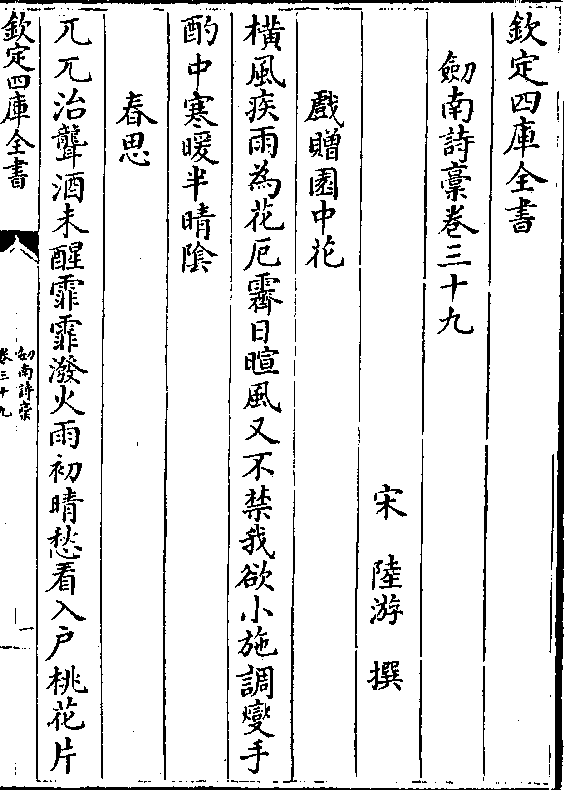 欽定四庫全書
劒南詩藁卷三十九
宋　陸游　撰
戲贈園中花
橫風疾雨為花厄霽日暄風又不禁我欲小施調爕手
酌中寒暖半晴隂
春思
兀兀治聾酒未醒霏霏潑火雨初晴愁看入戶桃花片
欽定四庫全書
劒南詩藁
卷三十九
一